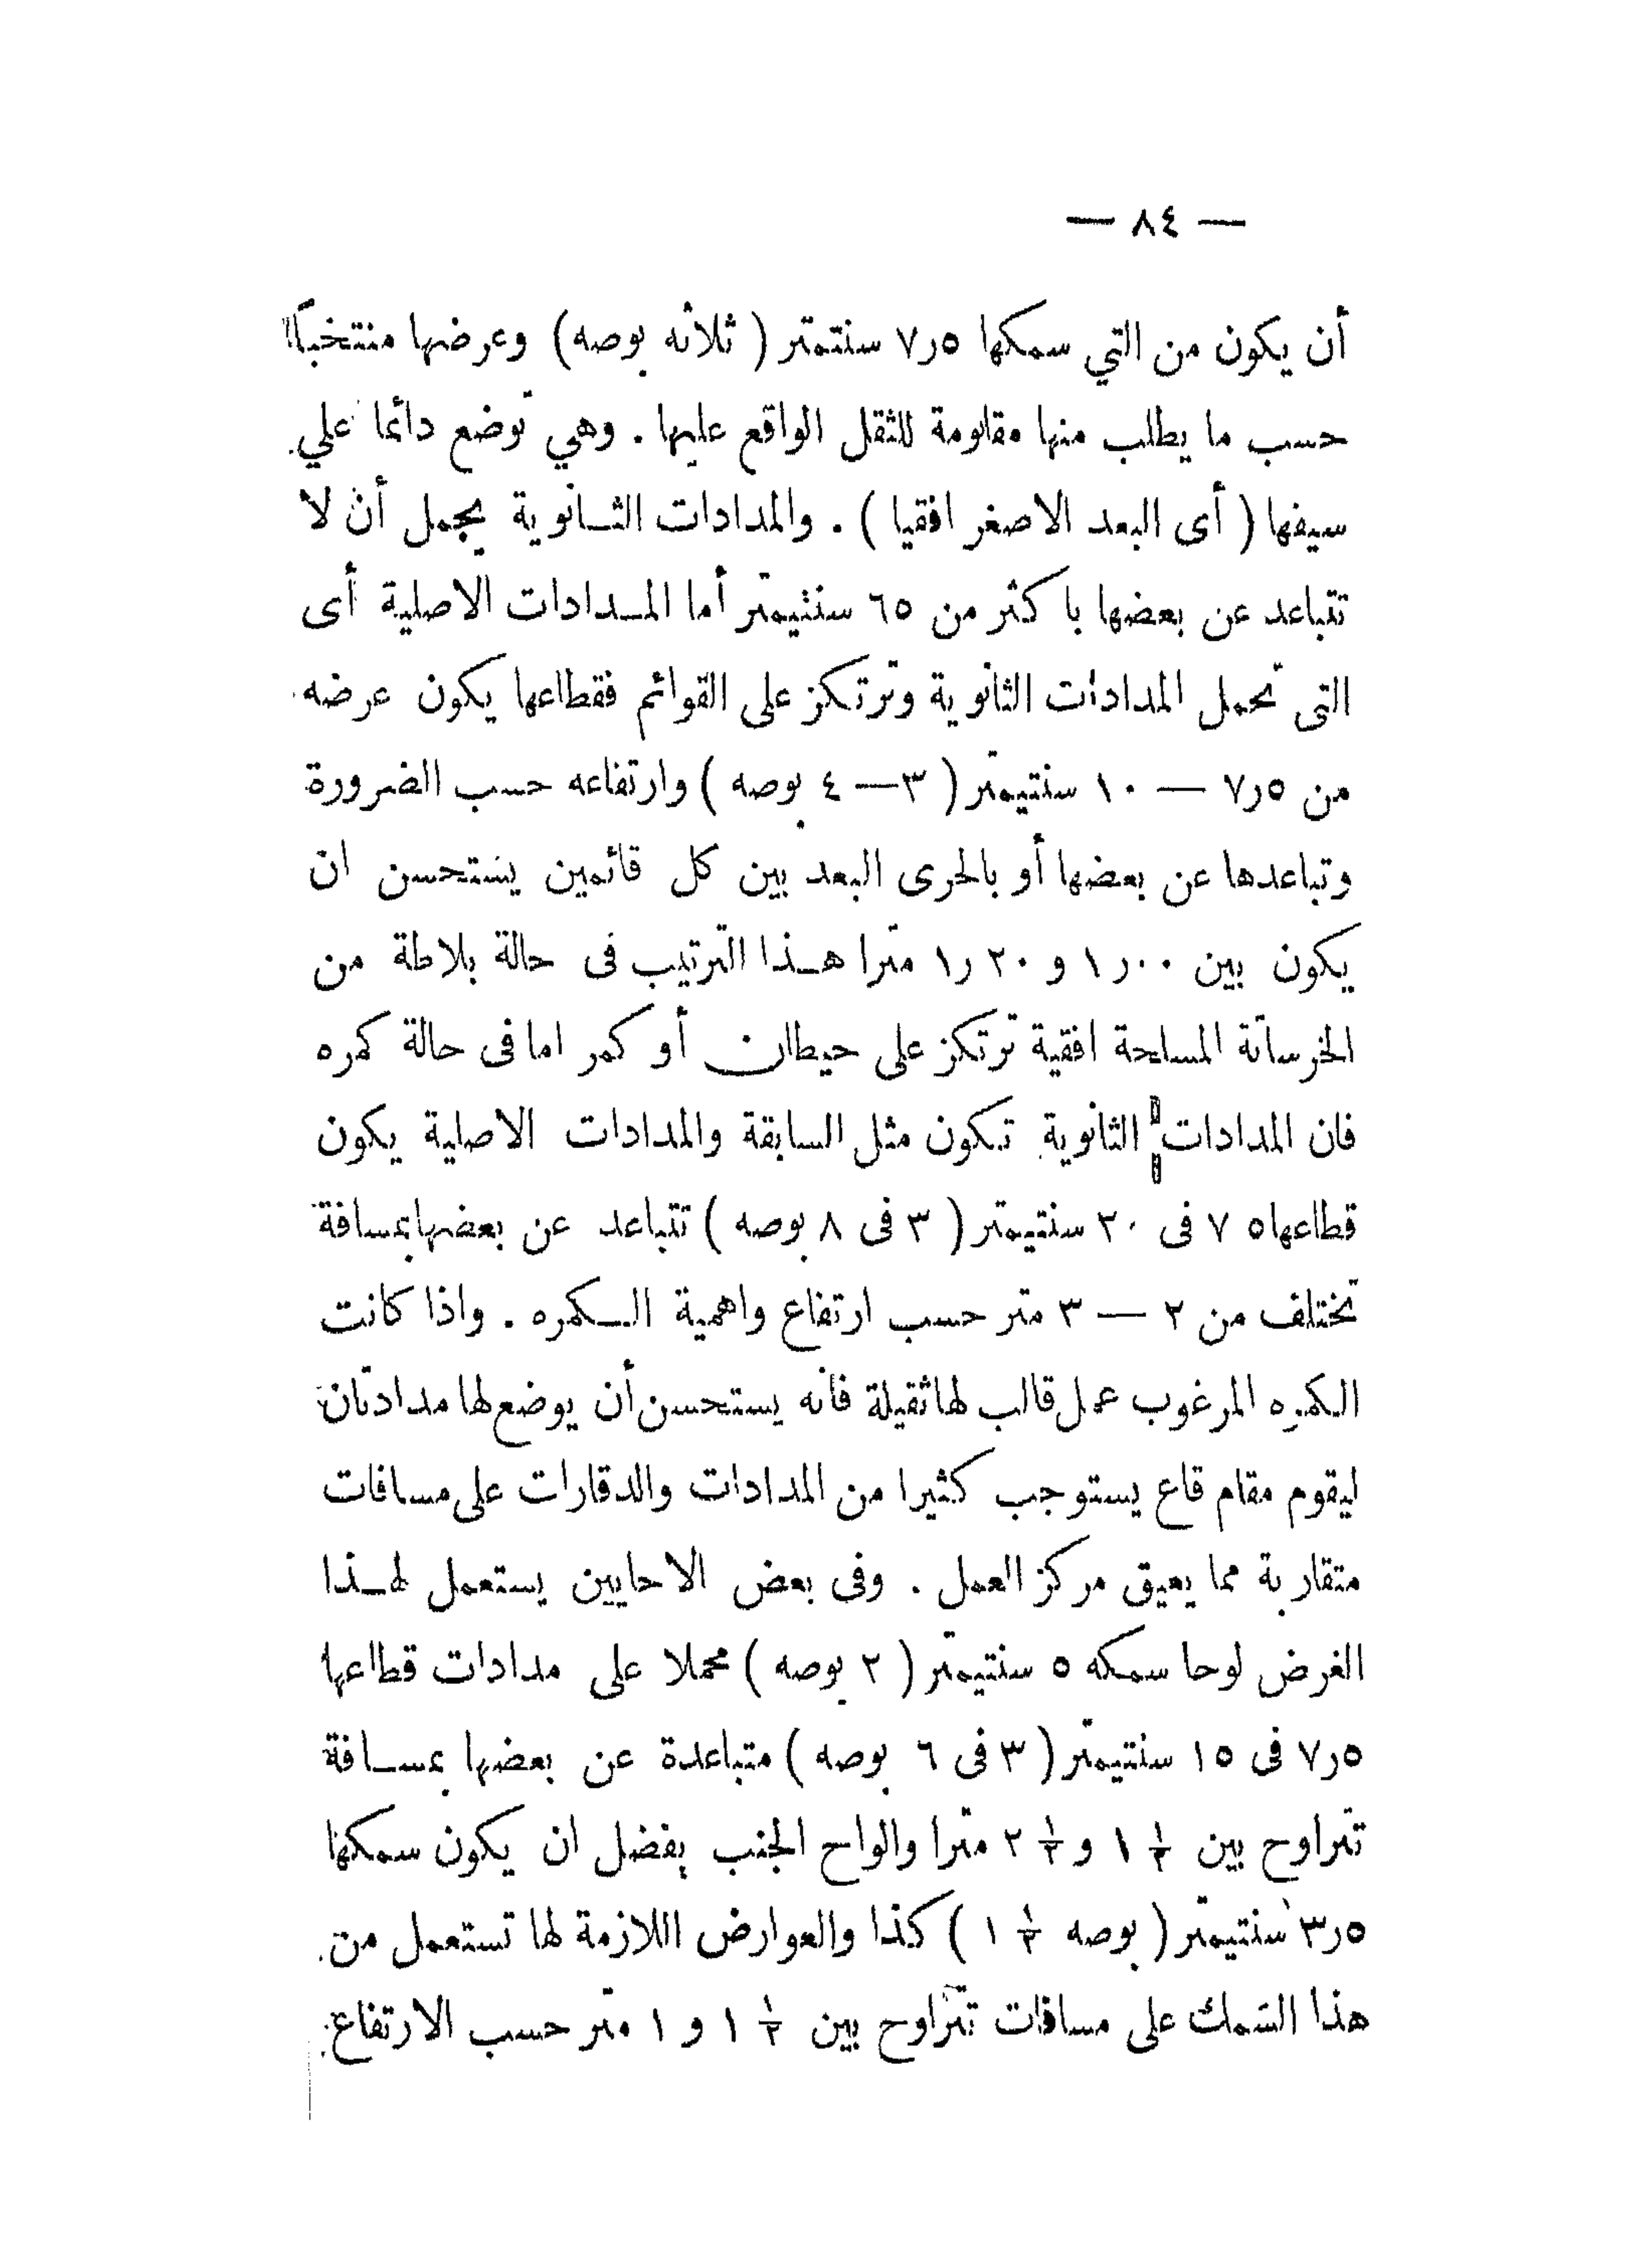 — ٨٤ —
أن يكون من التي سمكها ٥ر٧ سنتمتر ( ثلاثه بوصه) وعرضها منتخباً
حسب ما يطلب منها مقاومة للثقل الواقع عليها . وهي توضع دائما علي
سيفها ( أى البعد الاصغر افقيا ) . والمدادات الثـانوية يجمل أن لا
تتباعد عن بعضها با كثر من ٦٥ سنتيمتر أما المـدادات الاصلية أى
التى تحمل المدادات الثانوية وترتكز على القوائم فقطاعها يكون عرضه
من ٥ر٧ — ١٠ سنتيمتر ( ٣— ٤ بوصه ) وارتفاعه حسب الضرورة
وتباعدها عن بعضها أو بالحرى البعد بين كل قائمين يستحسن ان
يكون بين ٠٠ر١ و ٢٠ر١ مترا هـذا الترتيب فى حالة بلاطة من
الخرسانة المسلحة افقية ترتكز على حيطان أو كمر اما فى حالة كمره
فان المدادات الثانوية تكون مثل السابقة والمدادات الاصلية يكون
قطاعها ٥ ٧ فى ٢٠ سنتيمتر ( ٣ فى ٨ بوصه ) تتباعد عن بعضها بمسافة
تختلف من ٢ — ٣ متر حسب ارتفاع واهمية الـكمره . واذا كانت
الكمره المرغوب عمل قالب لها ثقيلة فانه يستحسن أن يوضع لها مدادتان
ليقوم مقام قاع يستوجب كثيرا من المدادات والدقارات على مسافات
متقاربة مما يعيق مركز العمل . وفى بعض الاحايين يستعمل لهـذا
الغرض لوحا سمكه ٥ سنتيمتر ( ٢ بوصه ) محملا على مدادات قطاعها
٥ر٧ فى ١٥ سنتيمتر ( ٣ فى ٦ بوصه ) متباعدة عن بعضها بمسـافة
تتراوح بين ١/٢ ١ و ١/٢ ٢ مترا والواح الجنب يفضل ان يكون سمكها
٥ر٣ سنتيمتر ( بوصه ١/٢ ١ ) كذا والعوارض اللازمة لها تستعمل من
هذا السمك على مسافات تتراوح بين ١/٢ ١ و ١ متر حسب الارتفاع